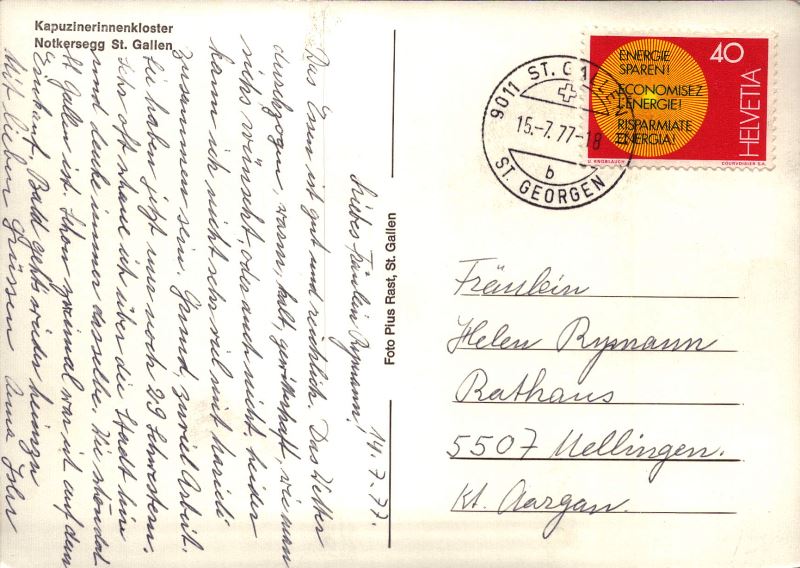 Kapuzinerinnenkloster
Notkersegg St. Gallen
14.7.77.
Liebes Fräulein Rymann!
Das Essen ist gut und reichlich. Das Wetter
durchzogen, warm, kalt, gewitterhaft, wie man
nichts wünscht, oder auch nicht, leider
kann ich nicht sehr viel mit
zusammen sein. Grund, zuviel Arbeit.
Sie haben jetzt nur noch 29 Schwestern.
Sehr oft schaue ich über die Stadt hin
und denke immer dasselbe. Wie
St. Gallen ist. Schon zweimal war ich auf dem
Bald gehts wieder heimzu
Mit lieben Grüssen Anna
Foto Pius Rast, St. Gallen
9011 ST. GALLEN
15.-7.77-18
b
ST. GEORGEN
ENERGIE
SPAREN!
ECONOMISEZ
L'ENERGIE!
RISPARMIATE
ENERGIA!
40
HELVETIA
U. KNOBLAUCH
COURVOISIER S.A.
Fräulein
Helen Rymann
Rathaus
5507 Mellingen.
Kt. Aargau.